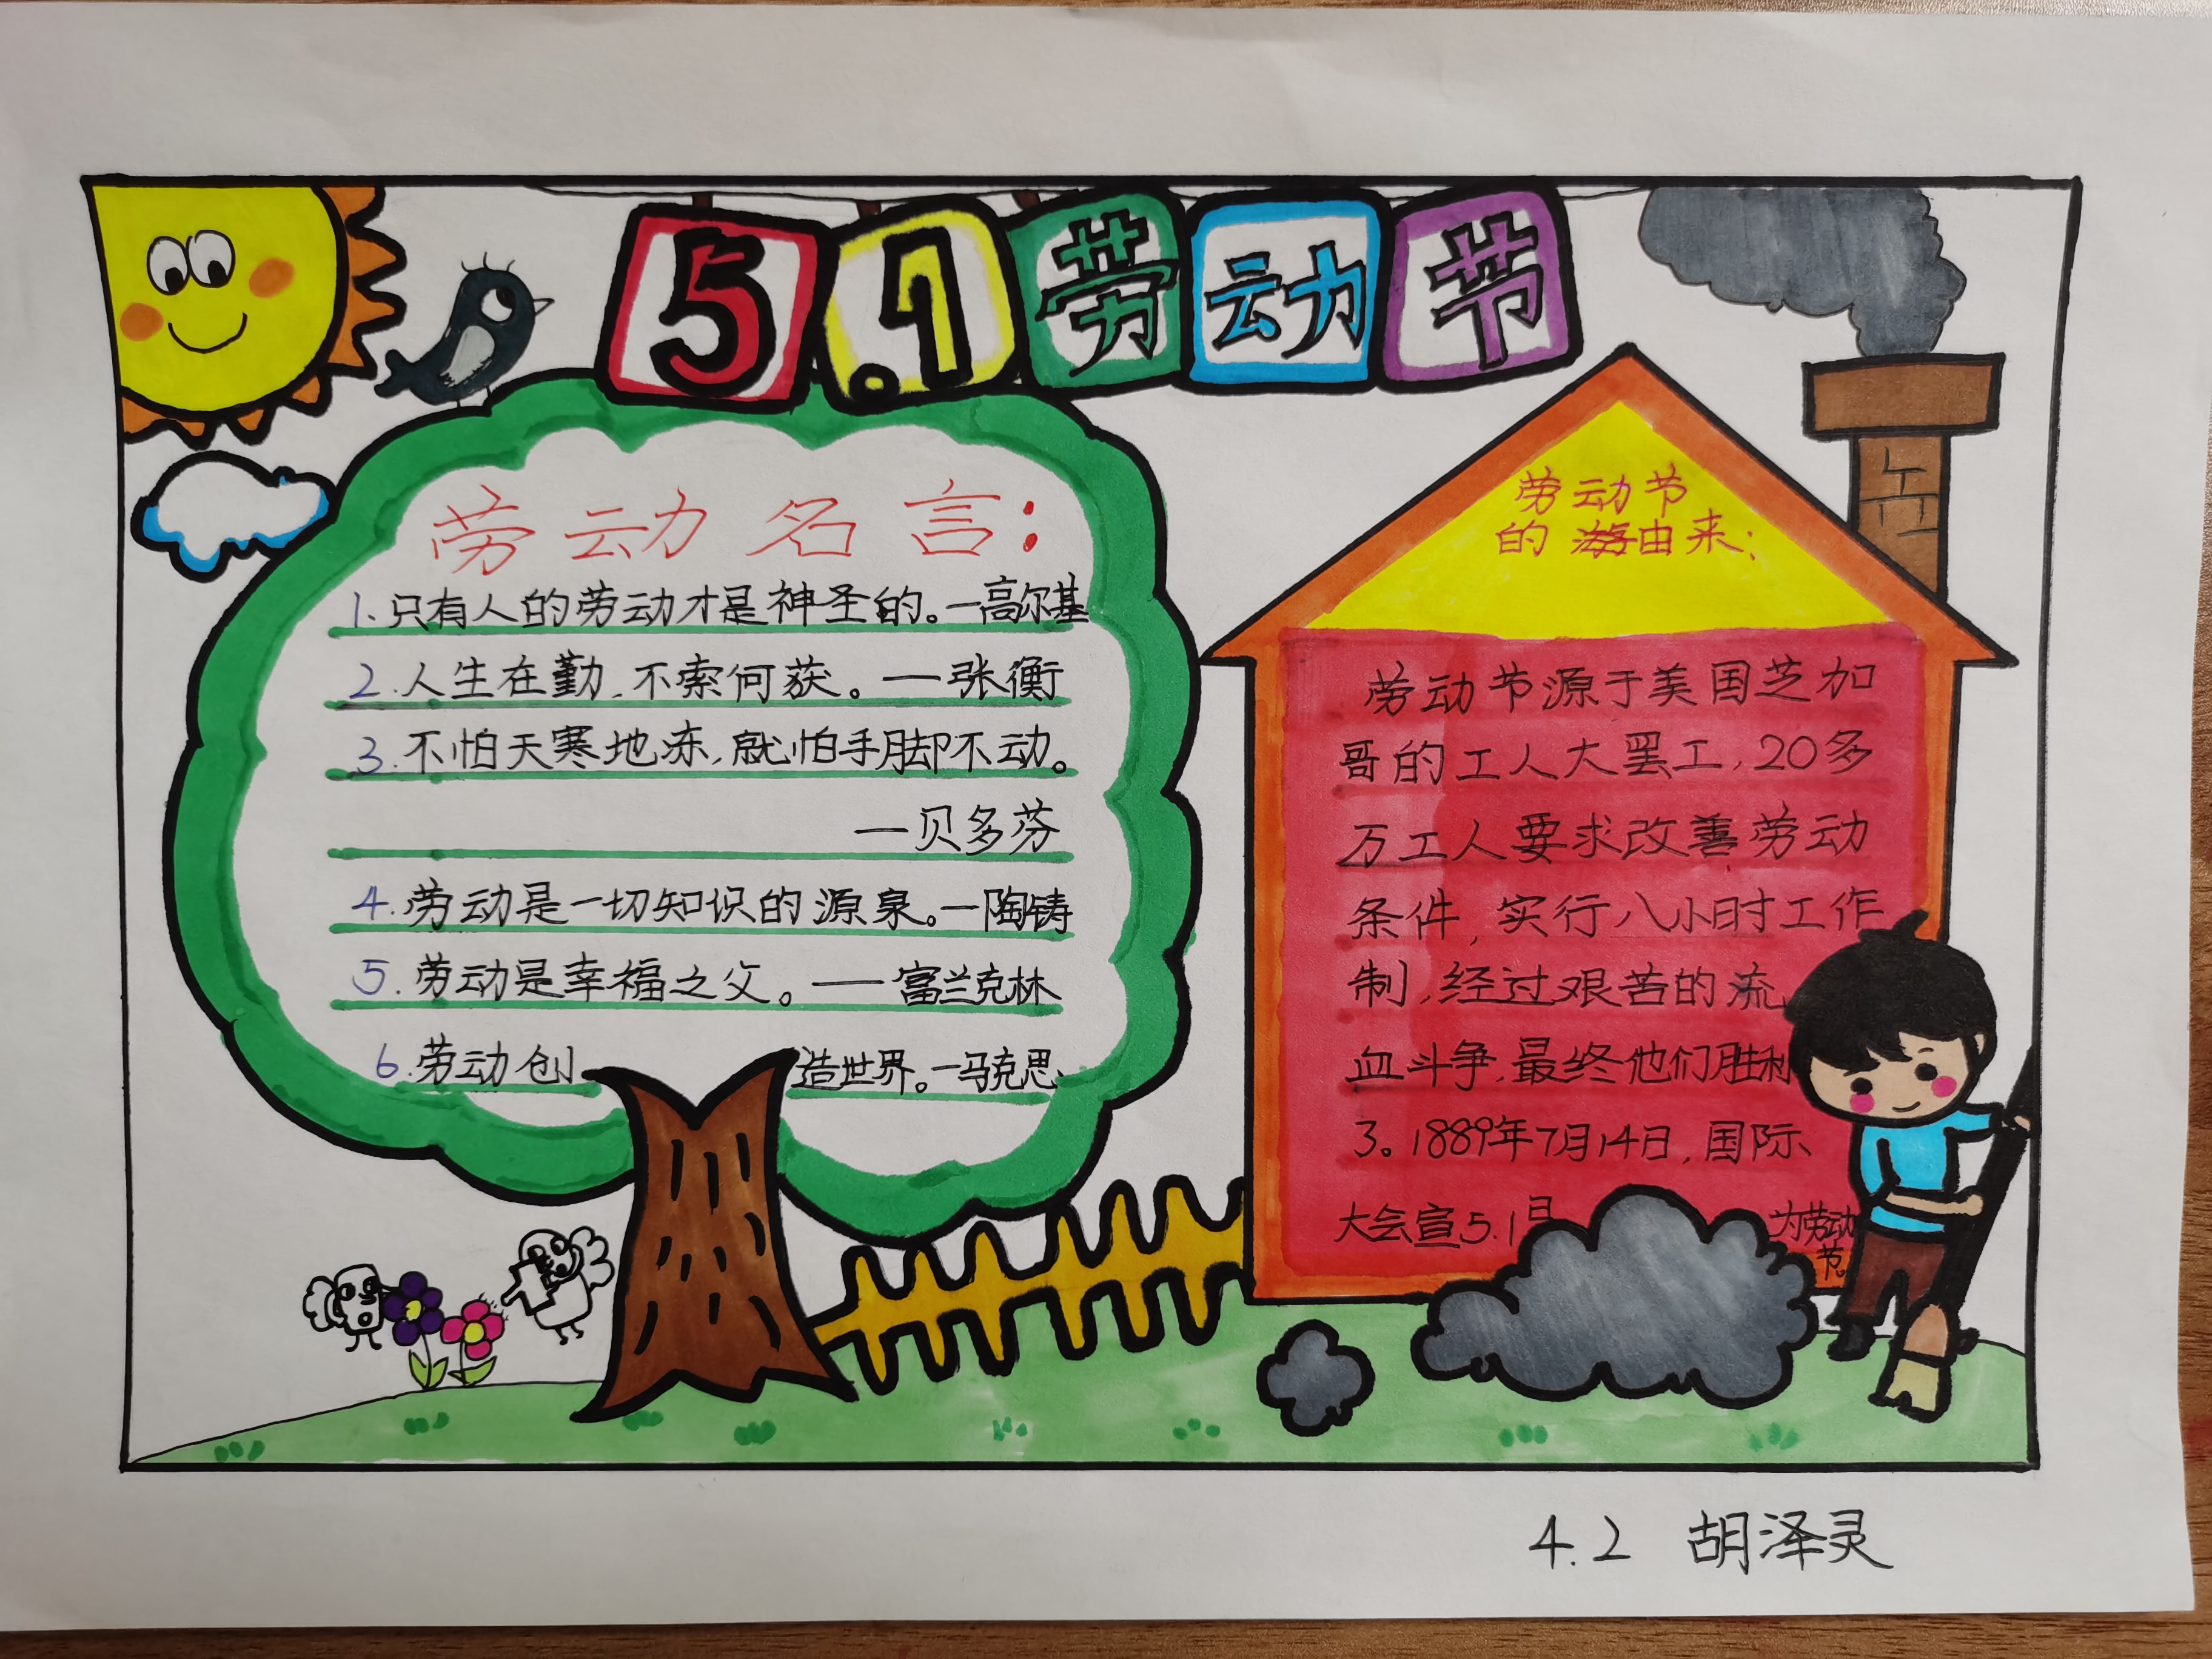 5.1劳动节
劳动名言：
1.只有人的劳动才是神圣的。一高尔基
2.人生在勤,不索何获。——张衡
3.不怕天寒地冻,就怕手脚不动。
—贝多芬
4.劳动是一切知识的源泉。—陶铸
5.劳动是幸福之父。——富兰克林
6.劳动创造世界。—马克思
劳动节
的由来：
劳动节源于美国芝加
哥的工人大罢工,20多
万工人要求改善劳动
条件,实行八小时工作
制,经过艰苦的流
血斗争,最终他们胜利
3。1889年7月14日,国际
大会宣5.1日为劳动
节。
4.2 胡泽灵